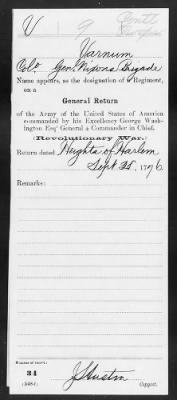 V 9
Varnum
Col. Gen. Nixons Brigade
Name appears, as the designation of a Regiment,
on a
General Return
of the Army of the United States of America
commanded by his Excellency George Wash-
ington Esqr General & Commander in Chief.
(Revolutionary War.)
Return dated Heights of Harlem
Sept 25, 1776.
Remarks:
Number of record:
34
Copyist.